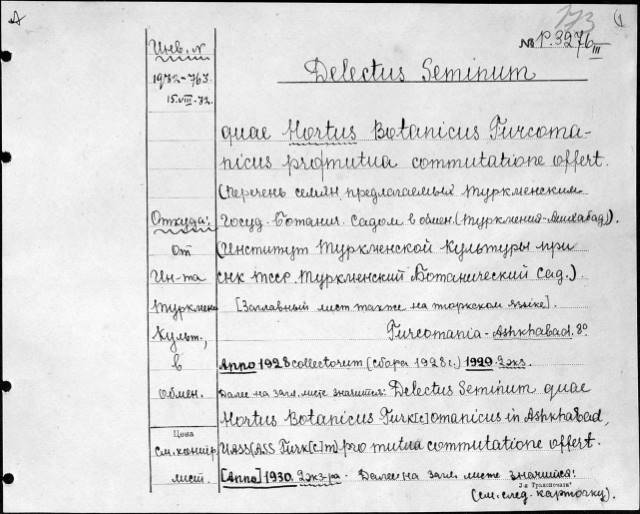 A
173
№ P.3276 III
Инв. №
1982-763
15.VIII.32.
Delectus Seminum
quae Hortus Botanicus Turcoma-
nicus pro mutua commutatione offert.
(Перечень семян, предлагаемых Туркменским
Откуда: Госуд. Ботанич. садом в обмен. (Туркмения-Ашхабад)).
от (Институт Туркменской Культуры при
Ин-та СНК ТССР. Туркменский Ботанический Сад.)
Туркмен. [Заглавный лист также на тюркском языке].
Культ., Turcomania-Ashkhabad. 8°
в Anno 1928 collectorum (сбора 1928 г.) 1929. 2 экз.
обмен. Далее на загл. листе значится: Delectus Seminum quae
Hortus Botanicus Turk[c]omanicus in Ashkhabad,
Цена
см. контр. UASS(ASS Turk[c]m) pro mutua commutatione offert.
лист. [Anno] 1930. 2 экз-ра. Далее на загл. листе значится:
(см. след. карточку).